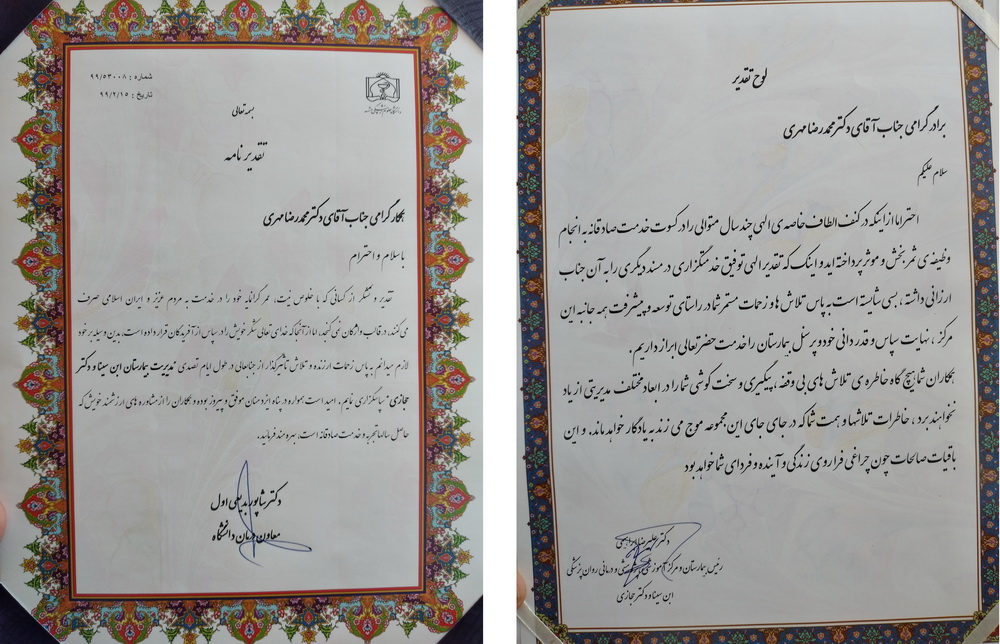 شماره : ۹۹/۵۳۰۰۸
تاریخ : ۹۹/۲/۱۵
بسمه تعالی
تقدیر نامه
همکار گرامی جناب آقای دکتر محمدرضا مهری
با سلام و احترام
تقدیر و تشکر از کسانی که با خلوص نیت، عمر گرانمایه خود را در خدمت به مردم عزیز و ایران اسلامی صرف
می کنند، در قالب واژگان نمی گنجد، اما از آنجا که خدای تعالی شکر خویش را در سپاس از آفریدگان قرار داده است، بدین وسیله بر خود
لازم میدانم به پاس زحمات ارزنده و تلاش تاثیرگذار از جنابعالی در طول ایام تصدی مدیریت بیمارستان ابن سینا و دکتر
حجازی سپاسگزاری نمایم. امید است همواره در پناه ایزد منان موفق و پیروز بوده و همکاران را از مشاوره های ارزشمند خویش که
حاصل سالها تجربه و خدمت صادقانه است، بهره مند فرمائید.
دکتر شاپور بدیعی اول
معاون درمان دانشگاه
لوح تقدیر
برادر گرامی جناب آقای دکتر محمدرضا مهری
سلام علیکم
احتراما از اینکه در کنف الطاف خاصه ی الهی چند سال متوالی را در کسوت خدمت صادقانه به انجام
وظیفه ی ثمربخش و موثر پرداخته اید و اینک که تقدیر الهی توفیق خدمتگزاری در مسند دیگری را به آن جناب
ارزانی داشته ، بسی شایسته است به پاس تلاش ها و زحمات مستمر شما در راستای توسعه و پیشرفت همه جانبه این
مرکز ، نهایت سپاس و قدردانی خود و پرسنل بیمارستان را خدمت حضرتعالی ابراز داریم.
همکاران شما هیچ گاه خاطره ی تلاش های بی وقفه ، پیگیری و سخت کوشی شما را در ابعاد مختلف مدیریتی از یاد
نخواهند برد ، خاطرات تلاشها و همت شما که در جای جای این مجموعه موج می زند به یادگار خواهد ماند. و این
باقیات صالحات چون چراغی فراروی زندگی و آینده و فردای شما خواهد بود
دکتر علیرضا ابراهیمی
رئیس بیمارستان و مرکز آموزشی پژوهشی و درمانی روان پزشکی
ابن سینا و دکتر حجازی